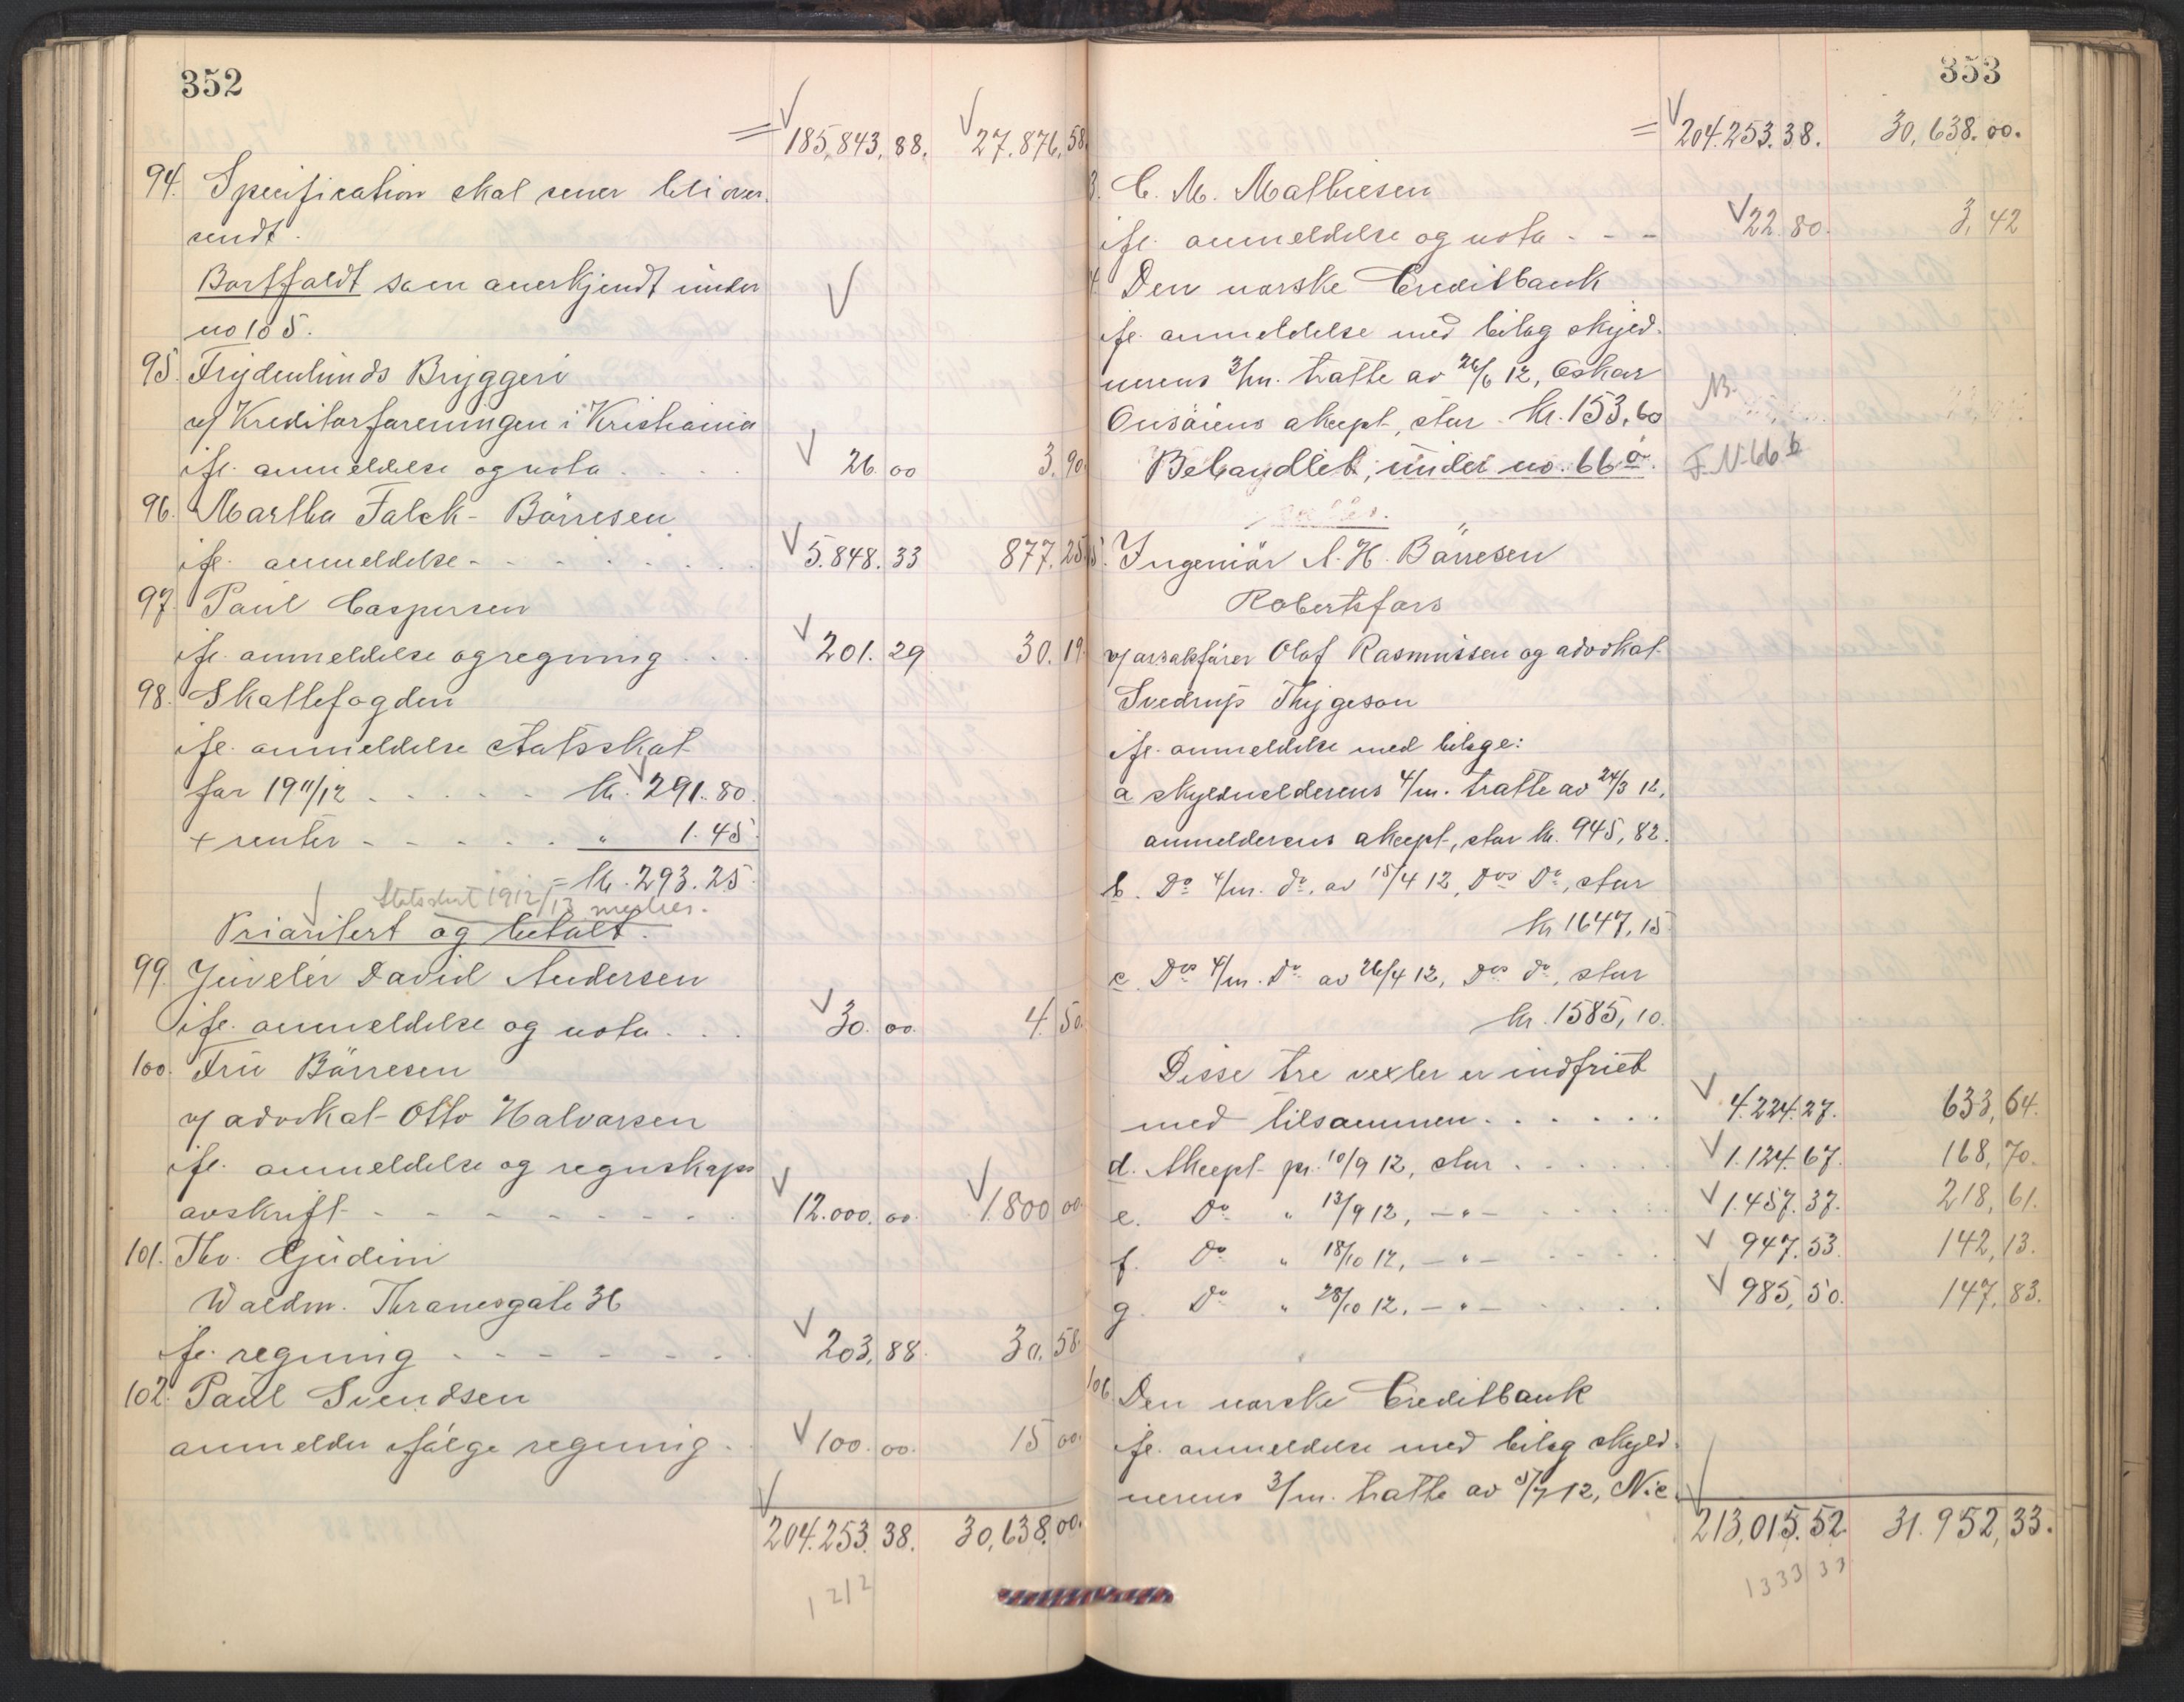 352
= 185,843,88. 27.876,58.
94. Specifikation skal sener bli over-
sendt.
Bortfaldt som anerkjendt under
no 105.
95. Frydenlunds Bryggeri
v/ Kreditorforeningen i Kristiania
ifl. anmeldelse og nota . . . . 26.00 3.90
96. Martha Falck-Börresen
ifl. anmeldelse - - - . . . . 5.848.33 877.25
97. Paul Caspersen
ifl. anmeldelse og regning . . . 201.29 30.19
98. Skattefogden
ifl. anmeldelse statsskat
for 1911/12 . . . . . kr. 291.80.
+ renter - - - - - . " 1.45.
= kr. 293.25.
Statsskat 1912/13
Prioritert og betalt.
99. Juvelér David Andersen
ifl. anmeldelse og nota . . . 30.00. 4.50.
100. Fru Börresen
v/ advokat Otto Halvorsen
ifl. anmeldelse og regnskaps
avskrift - - - - - - - - - 12.000.00. 1.800 00
101. Thv. Gjüdim
Waldm. Thranesgate 36
ifl. regning - - - - - - - 203,88. 30.58.
102. Paul Svendsen
anmelder ifölge regning . . 100.00. 15 00.
204.253.38. 30,638.00.
1212
353
= 204.253.38. 30,638.00.
3. C. M. Mathiesen
ifl. anmeldelse og nota - - - 22.80. 3,42
4. Den norske Creditbank
ifl. anmeldelse med bilag skyld-
nerens 3/m. tratte av 26/6 12, Oskar
Onsöiens aksept, stor kr. 153,60
Behandlet, under no. 66 a.
F. N. 66 b
5. Ingeniör A. H. Börresen
Robertsfors
v/ orsakförer Olof Rasmussen og advokat
Svedrup Thygeson
ifl. anmeldelse med bilage:
a skyldnelderens 4/m. tratte av 24/3 12,
anmelderens aksept, stor kr. 945,82.
b. Do 4/m. do. av 15/4 12, Dos Do, stor
kr 1647,15
c. Dos 4/m. Do av 26/4 12, Dos do, stor
kr. 1585,10.
Disse tre vexler er indfriet
med tilsammen . . . . . . 4.224.27. 633,64.
d. Aksept pr. 10/9 12, stor . . . . . . 1.124.67. 168,70.
e. Do " 13/9 12, — " — . . . . . . 1.457.37. 218,61.
f. Do " 18/10 12, — " — . . . . . . 947.53. 142,13.
g. Do " 28/10 12, — " — . . . . . 985,50. 147,83.
106 Den norske Creditbank
ifl. anmeldelse med bilag skyld-
nerens 3/m. tratte av 5/7 12, Nic.
213,015.52. 31.952,33.
1333 33